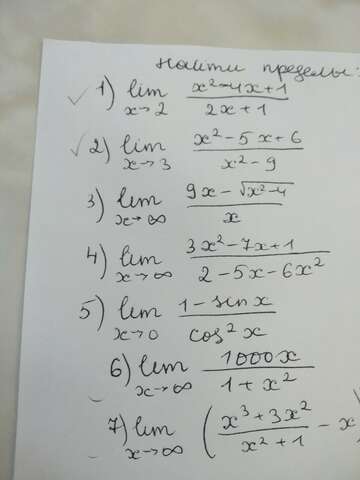 Найти пределы:
1) lim x→2 (x²-4x+1)/(2x+1)
2) lim x→3 (x²-5x+6)/(x²-9)
3) lim x→∞ (9x-√(x²-4))/x
4) lim x→∞ (3x²-7x+1)/(2-5x-6x²)
5) lim x→0 (1-sinx)/(cos²x)
6) lim x→∞ (1000x)/(1+x²)
7) lim x→∞ ((x³+3x²)/(x²+1) - x)